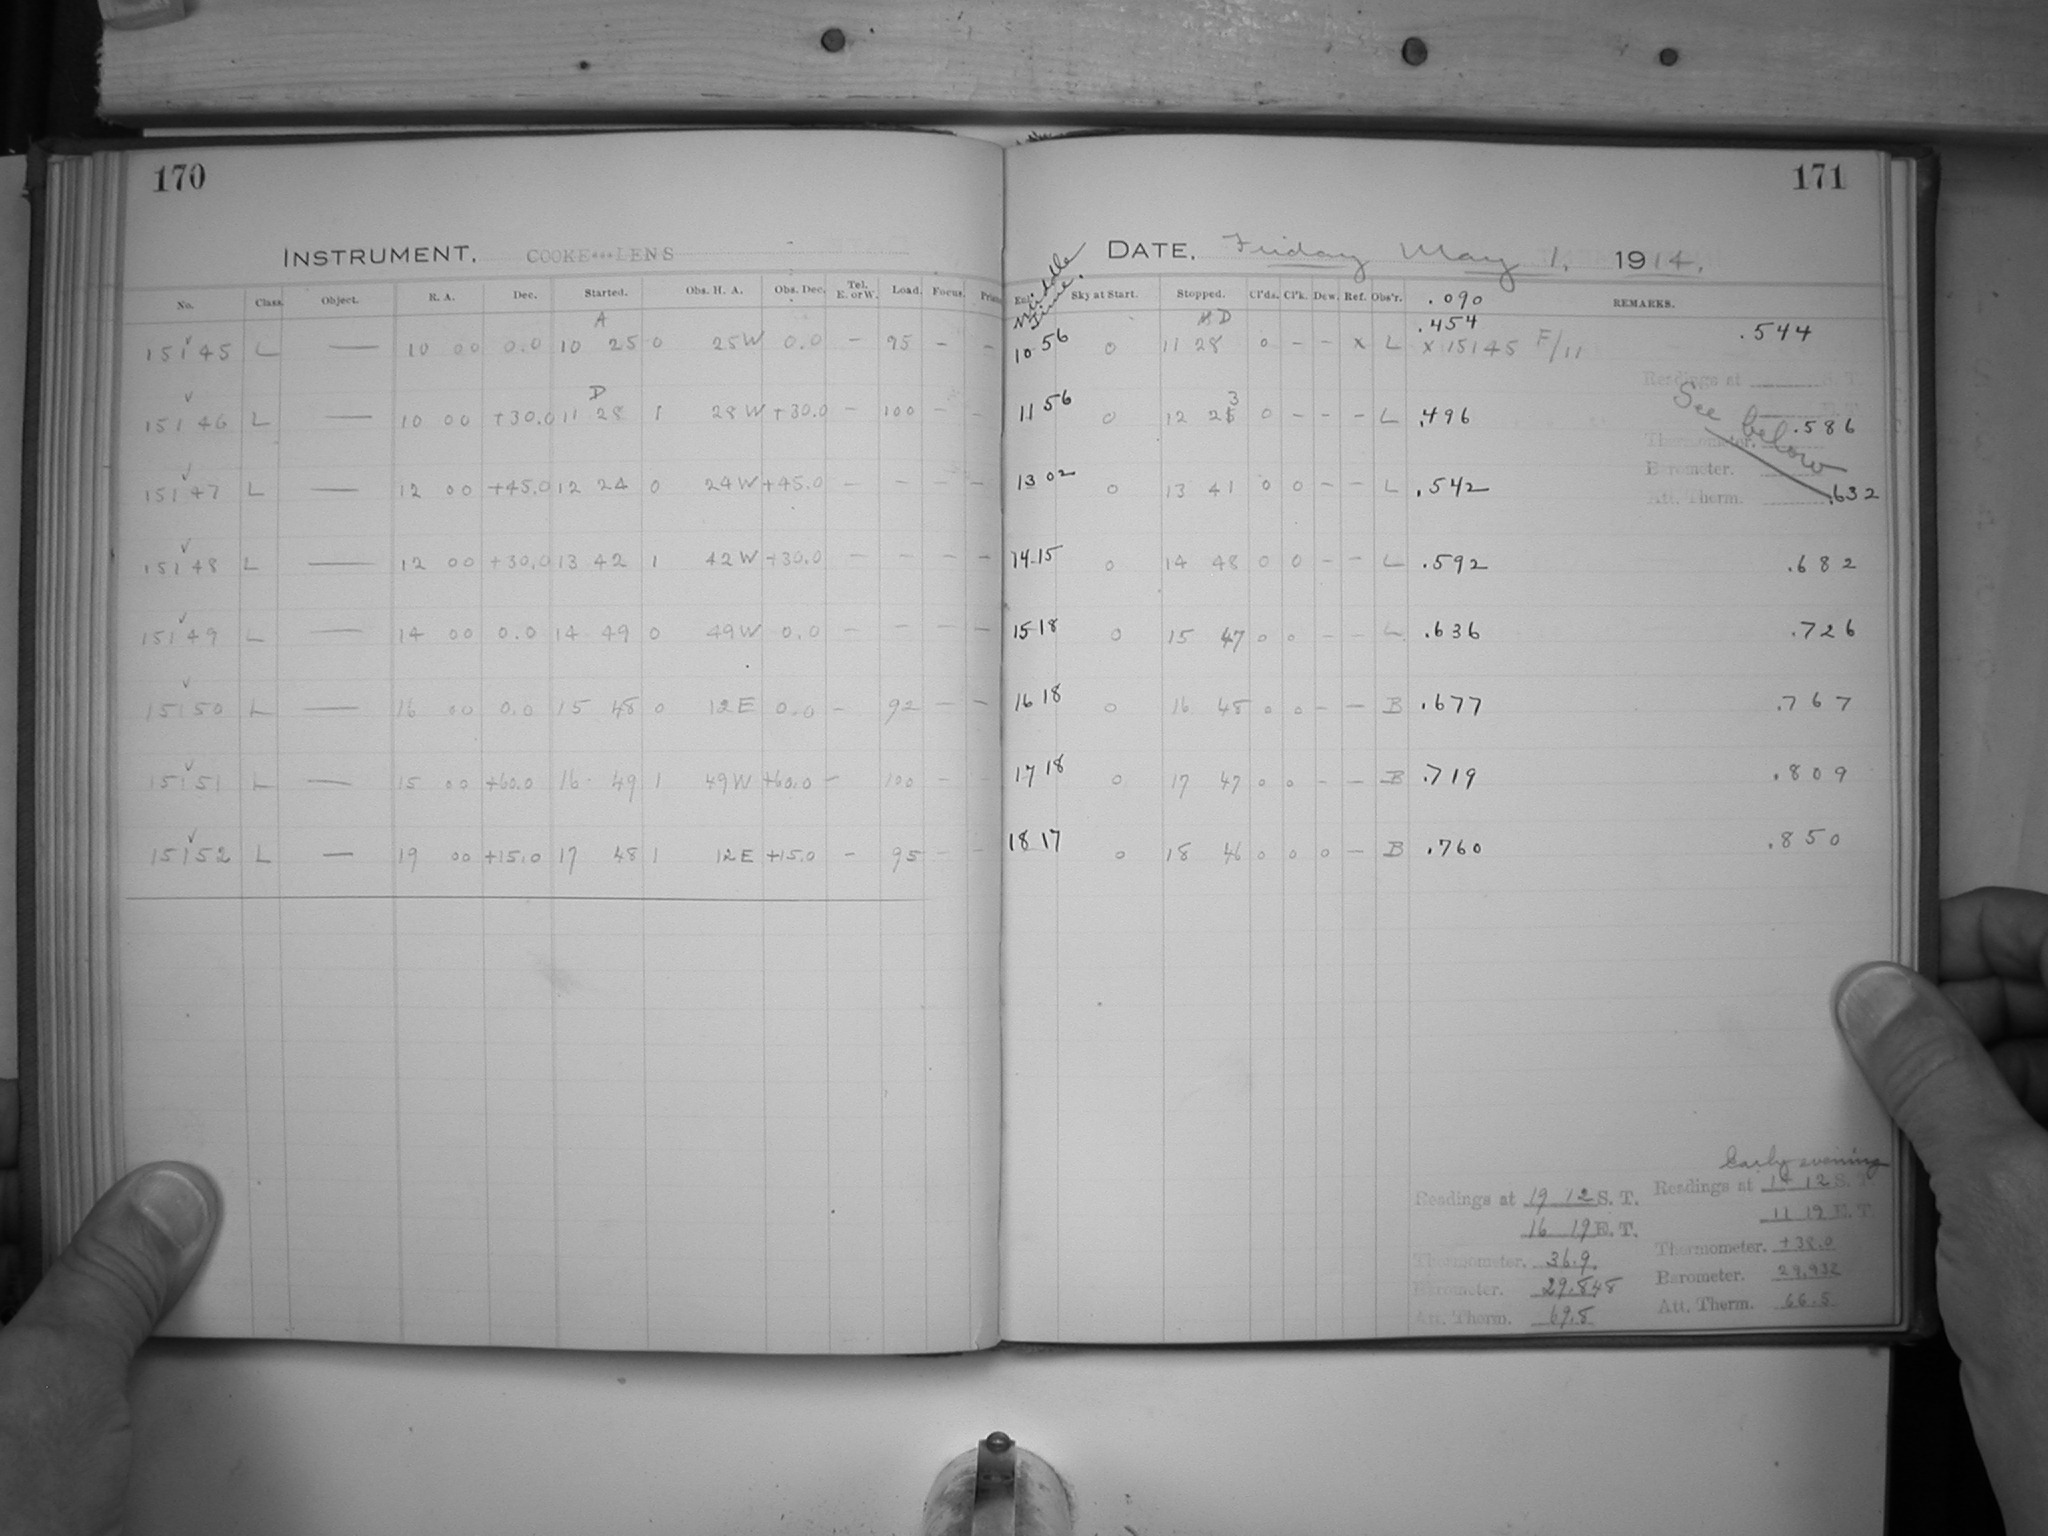 170
INSTRUMENT. COOKE LENS
No. Class. Object. R. A. Dec. Started. Obs. H. A. Obs. Dec. Tel. E. or W. Load. Focus.
A
15145 L — 10 00 0.0 10 25 0 25W 0.0 – 95 – –
D
15146 L — 10 00 +30.0 11 28 1 28W +30.0 – 100 – –
15147 L — 12 00 +45.0 12 24 0 24W +45.0 – – – –
15148 L — 12 00 +30.0 13 42 1 42W +30.0 – – – –
15149 L — 14 00 0.0 14 49 0 49W 0.0 – – – –
15150 L — 16 00 0.0 15 48 0 12E 0.0 – 92 – –
15151 L — 15 00 +60.0 16 49 1 49W +60.0 – 100 – –
15152 L — 19 00 +15.0 17 48 1 12E +15.0 – 95 – –
171
DATE. Friday May 1, 1914.
Middle Time. Sky at Start. Stopped. Cl'ds. Cl'k. Dew. Ref. Obs'r. .090 REMARKS.
D .454 .544
10 56 0 11 28 0 – – x L x 15145 F/11
Readings at S. T.
See below
11 56 0 12 23 0 – – – L .496 .586
Thermometer.
Barometer.
13 02 0 13 41 0 0 – – L .542 .632
Att. Therm.
14 15 0 14 48 0 0 – – L .592 .682
15 18 0 15 47 0 0 – – L .636 .726
16 18 0 16 48 0 0 – – B .677 .767
17 18 0 17 47 0 0 – – B .719 .809
18 17 0 18 46 0 0 0 – B .760 .850
Early evening
Readings at 19 12 S. T.
16 19 E. T.
Thermometer. 36.9.
Barometer. 29.848
Att. Therm. 69.8
Readings at 14 12 S. T.
11 19 E. T.
Thermometer. +38.0
Barometer. 29.932
Att. Therm. 66.5